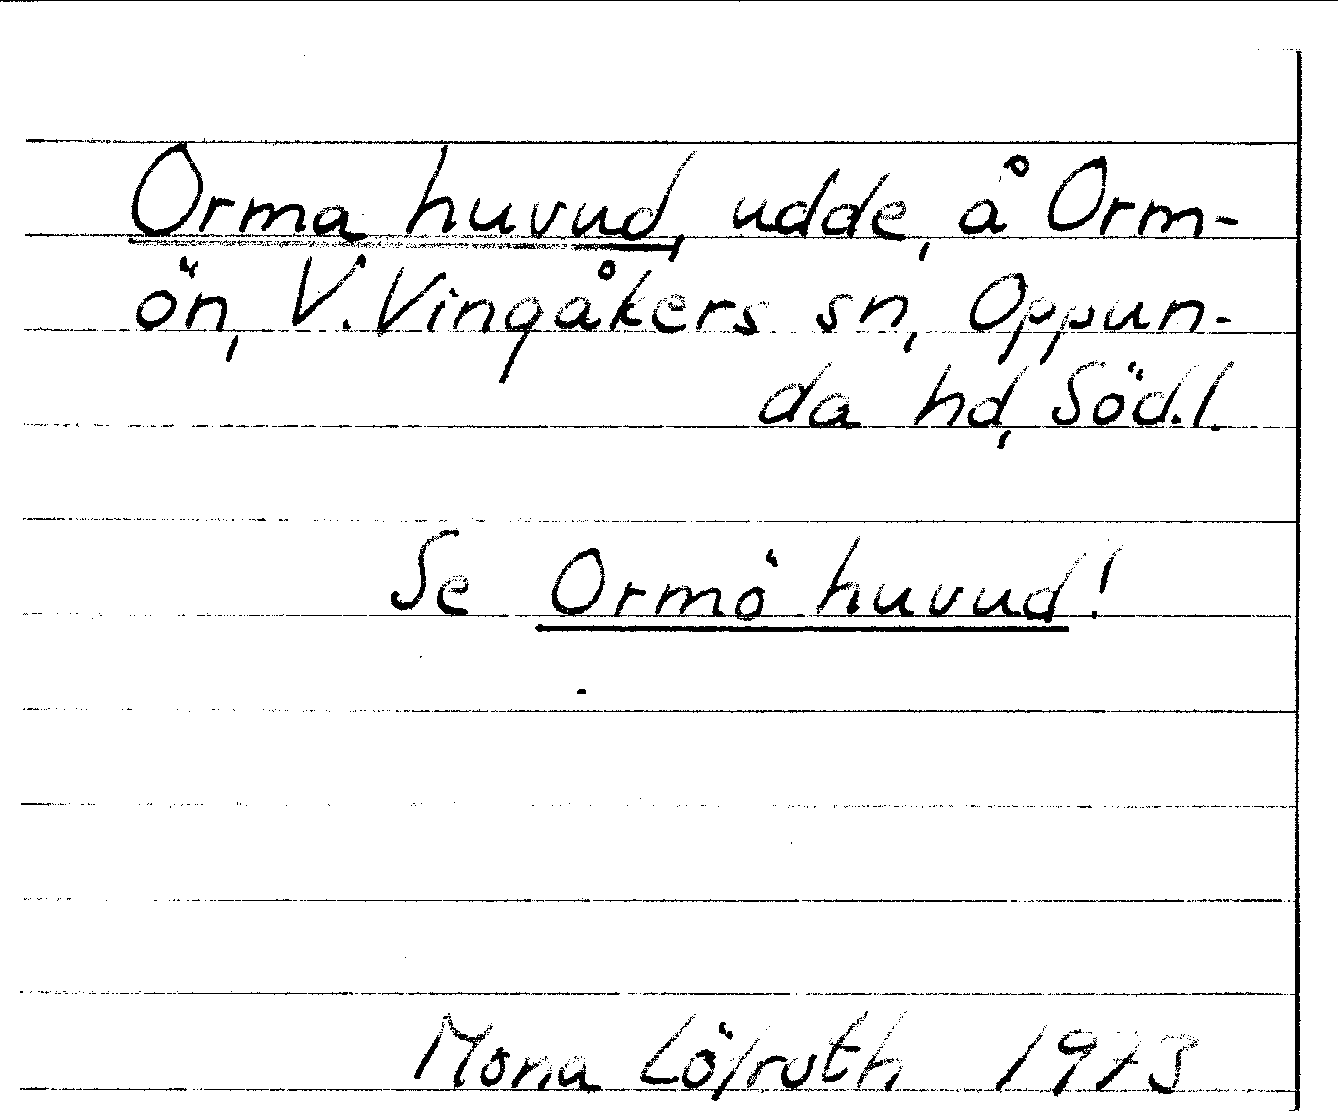 Orma huvud, udde, å Orm-
ön, V. Vingåkers sn, Oppun-
da hd, Söd.l.
Se Ormö huvud!
Mona Löfroth 1973